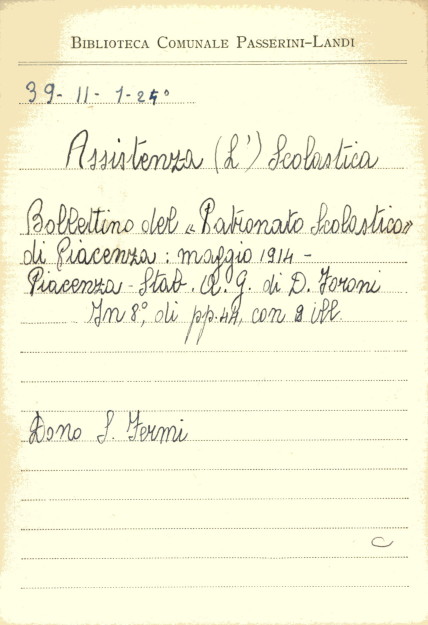 BIBLIOTECA COMUNALE PASSERINI-LANDI
39-II-1-24°
Assistenza (L') Scolastica
Bollettino del «Patronato Scolastico»
di Piacenza: maggio 1914 -
Piacenza - Stab. A. G. di D. Foroni
In 8°, di pp. 44, con ill.
Dono S. Fermi
C